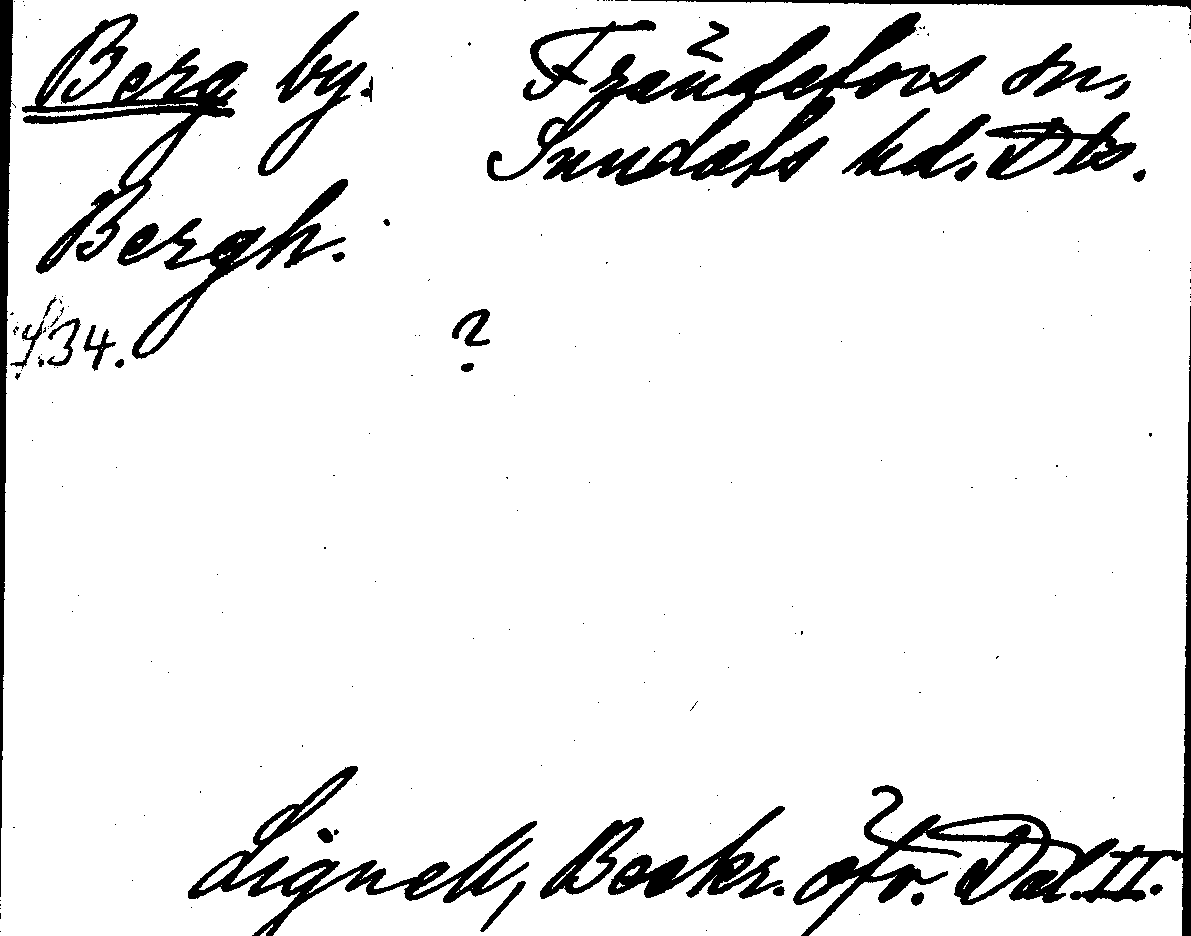 Berg by. Frändefors sn,
Sundals hd. Dls.
Bergh.
S.34. ?
Lignell, Beskr. öfv. Dal.II.